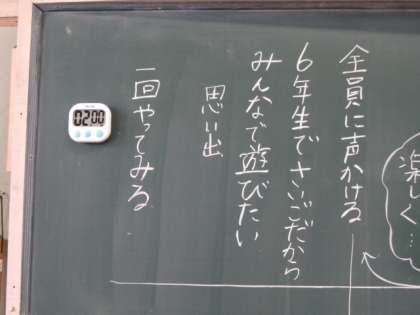 楽しく…
全員に声かける
6年生でさいごだから
みんなで遊びたい
思い出
一回やってみる
02:00